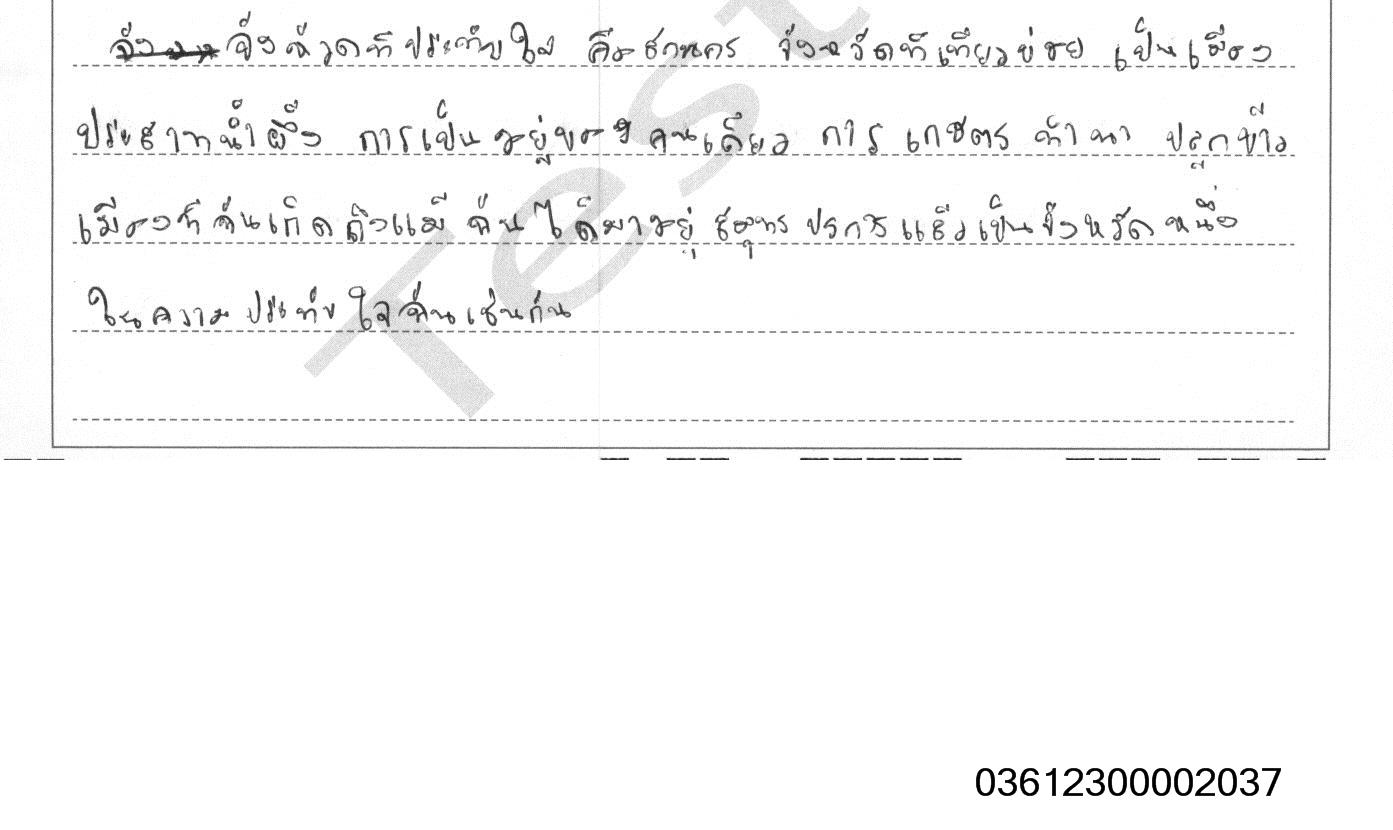 จังหวัดที่ประทับใจ คือสกนคร จังหวัดที่เที่ยวบ่อย เป็นเมือง
ประสาทน้ำผึ้ง การเป็นอยู่ของคนเดียว การ เกษตร ทำนา ปลูกข้าว
เมืองที่ฉันเกิดถึงแม้ ฉันได้มาอยู่ สมุทรปรการแล้วเป็นจังหวัดหนึ่ง
ในความ ประทับใจฉันเช่นกัน
Test
03612300002037